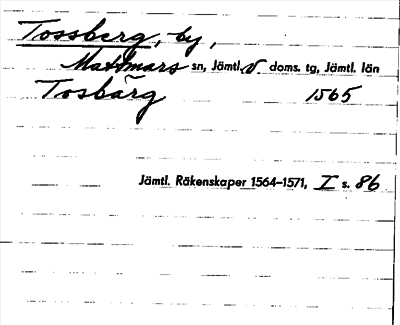 Tossberg, by,
Mattmars sn, Jämtl. V. doms. tg, Jämtl. län
Tosbärg 1565
Jämtl. Räkenskaper 1564–1571, I s. 86